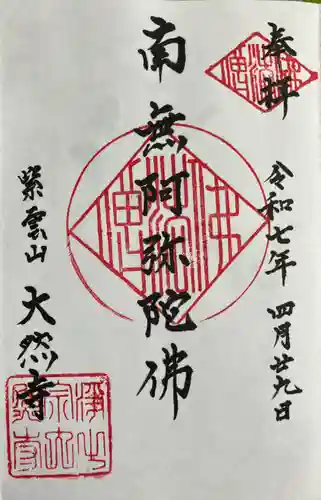 奉拝
令和七年 四月廿九日
南無阿弥陀佛
紫雲山 大然寺